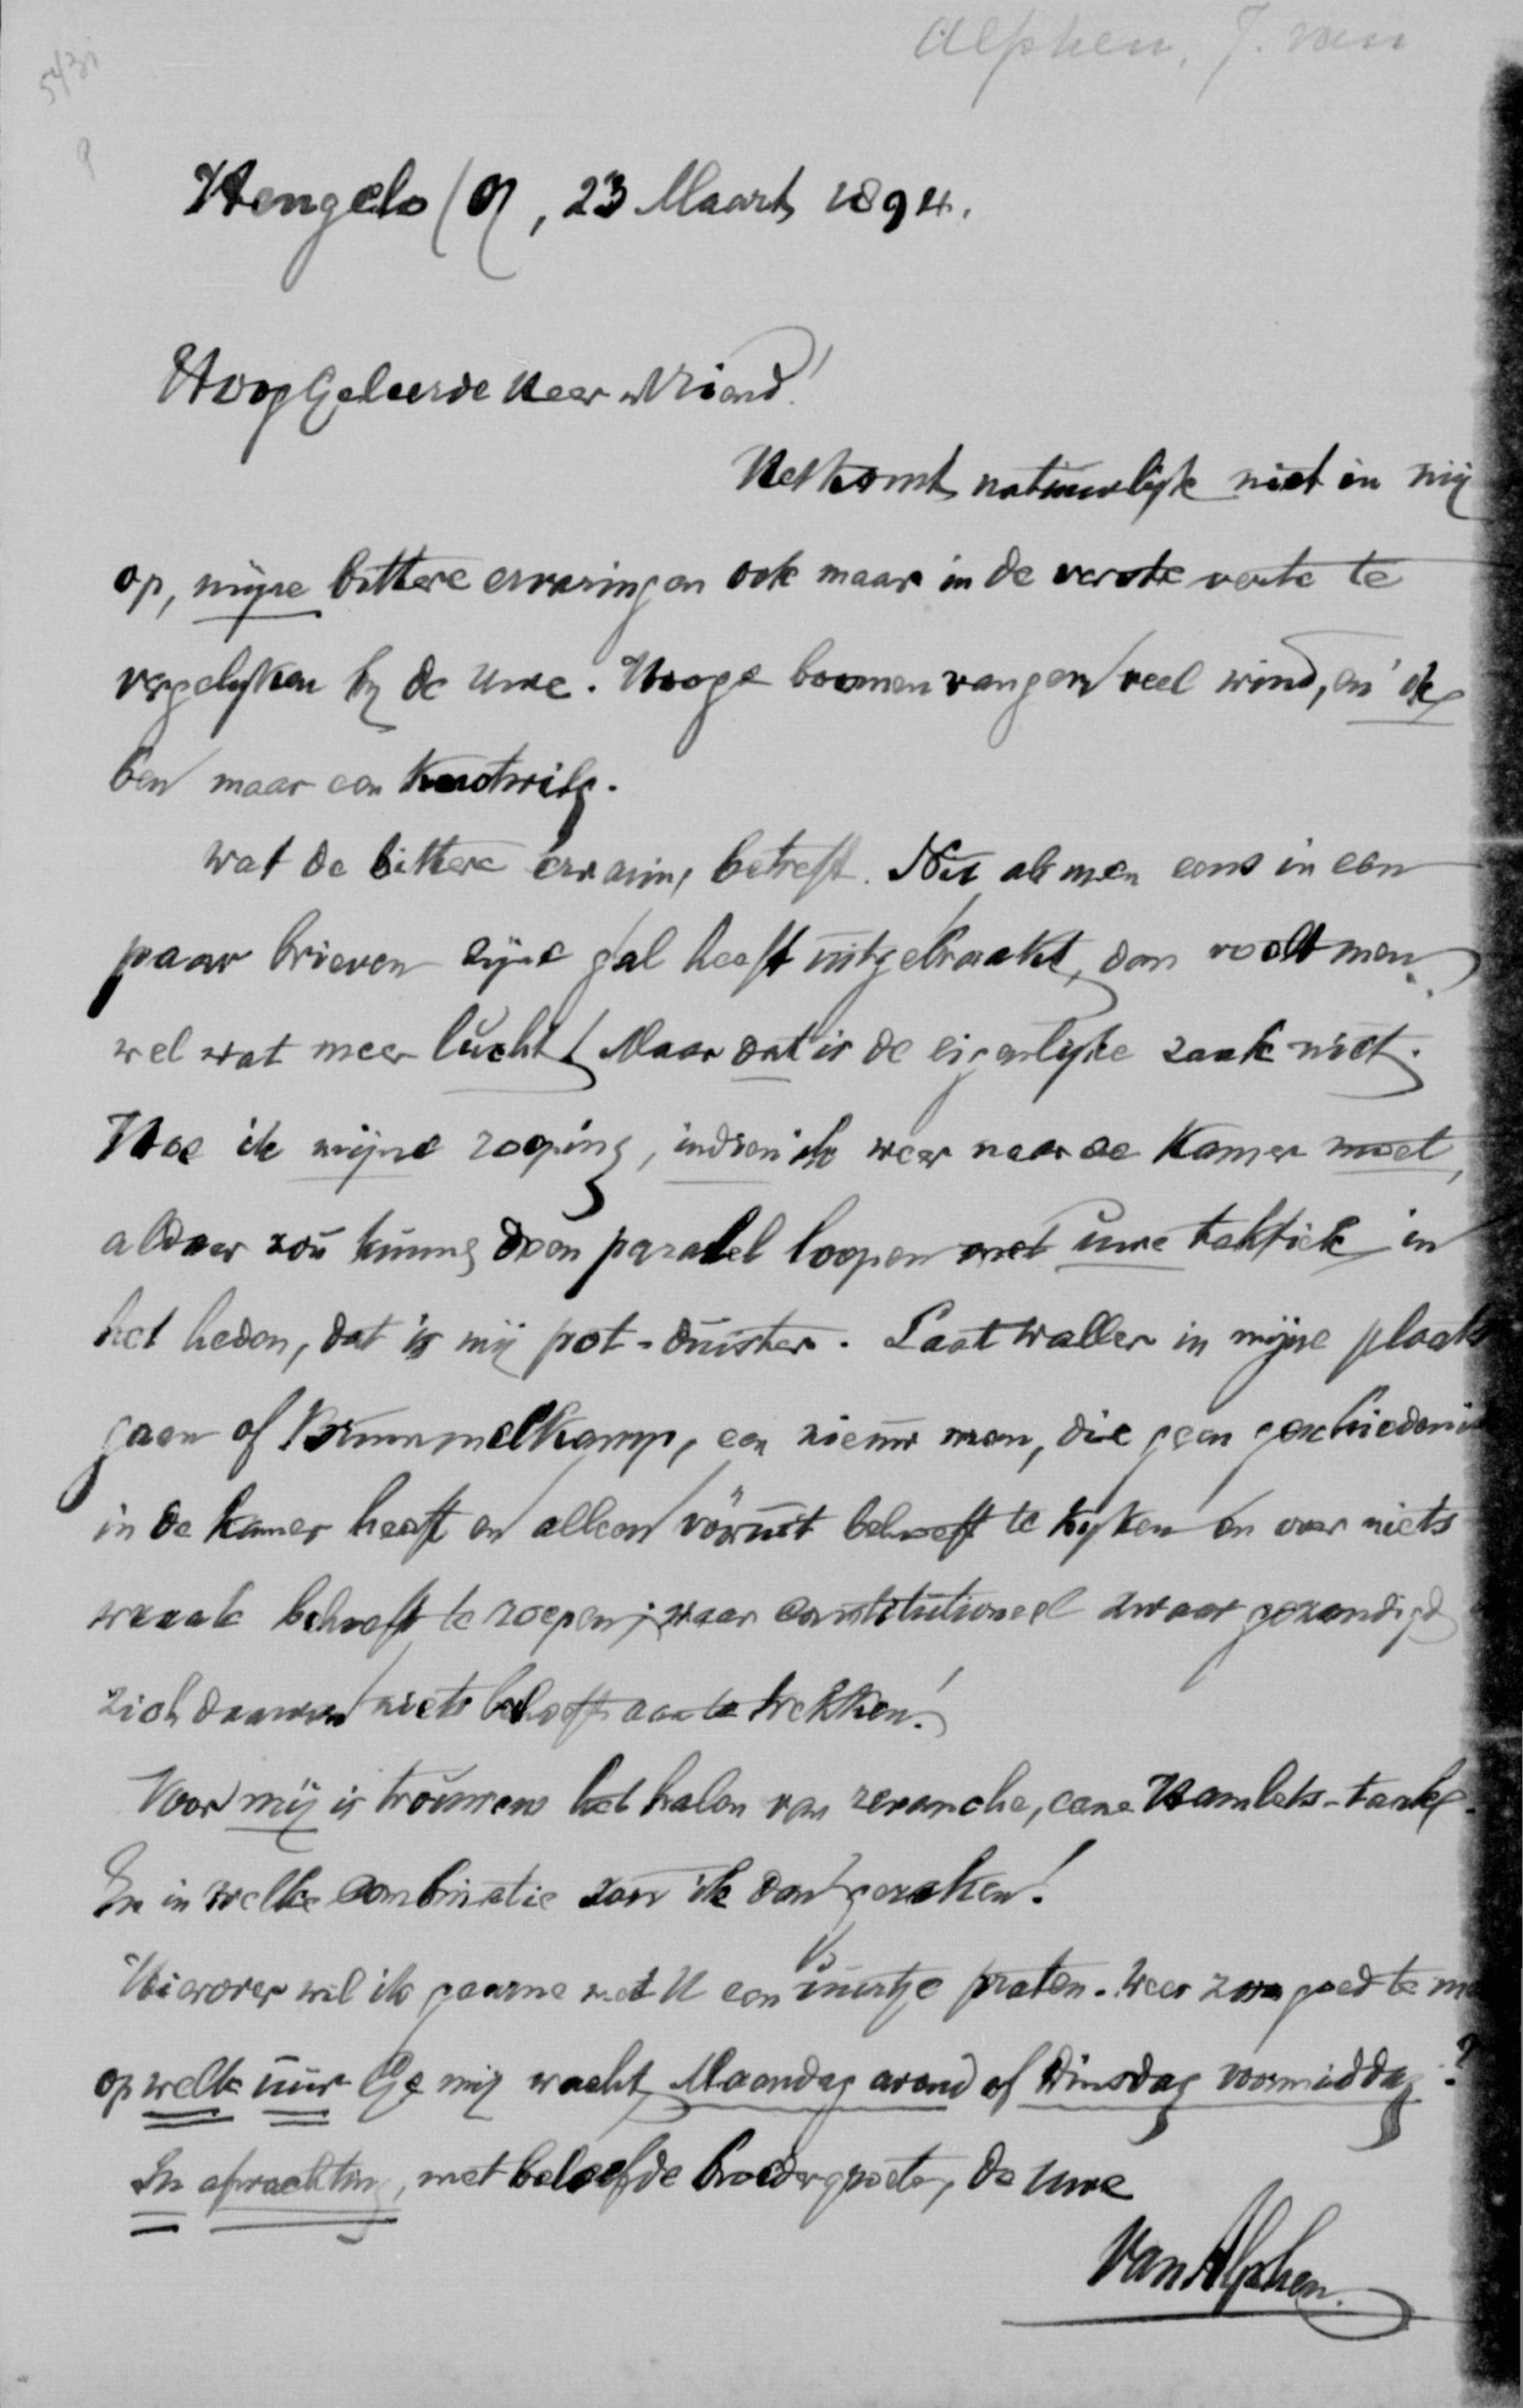 Alphen, J. van
5431
9
Hengelo (O), 23 Maart 1894.
HoogGeleerde Heer en Vriend!
Het komt natuurlijk niet in mij
op, mijne bittere ervaringen ook maar in de verste verte te
vergelyken by de Uwe. Hooge boomen vangen veel wind, en ik
ben maar een knotwilg.
Wat de bittere ervaring betreft. Nu als men eens in een
paar brieven zijne gal heeft uitgebraakt, dan voelt men
wel wat meer lucht! Maar dat is de eigenlijke zaak niet.
Hoe ik mijne roeping, indien ik weer naar de Kamer moet,
aldaar zou kunnen doen paralel loopen met uwe taktiek in
het heden, dat is mij pot-duister. Laat Waller in mijne plaats
gaan of Brummelkamp, een nieuw man, die geen geschiedenis
in de Kamer heeft en alleen vóóruit behoeft te kyken en over niets
wraak behoeft te roepen; waar constitutioneel zwaar gezondigd
zich daarvan niets behoeft aan te trekken!
Voor mij is trouwens het halen van revanche, eene Hamlets-taak.
En in welke combinatie zou ik dan geraken!
Hierover wil ik gaarne met U een ½ uurtje praten. Wees zoo goed te
op welk uur Ge mij wacht, Maandag avond of Dinsdag voormiddag?
In afwachting, met beleefde broedergroete, de Uwe
Van Alphen.